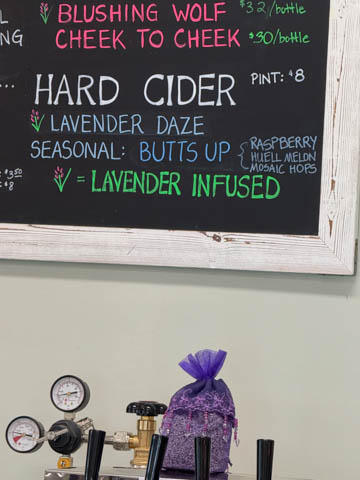 BLUSHING WOLF $32/bottle
NG CHEEK TO CHEEK $30/bottle
HARD CIDER PINT: $8
LAVENDER DAZE
SEASONAL: BUTTS UP { RASPBERRY
HUELL MELON
MOSAIC HOPS
$3.50
$8
= LAVENDER INFUSED